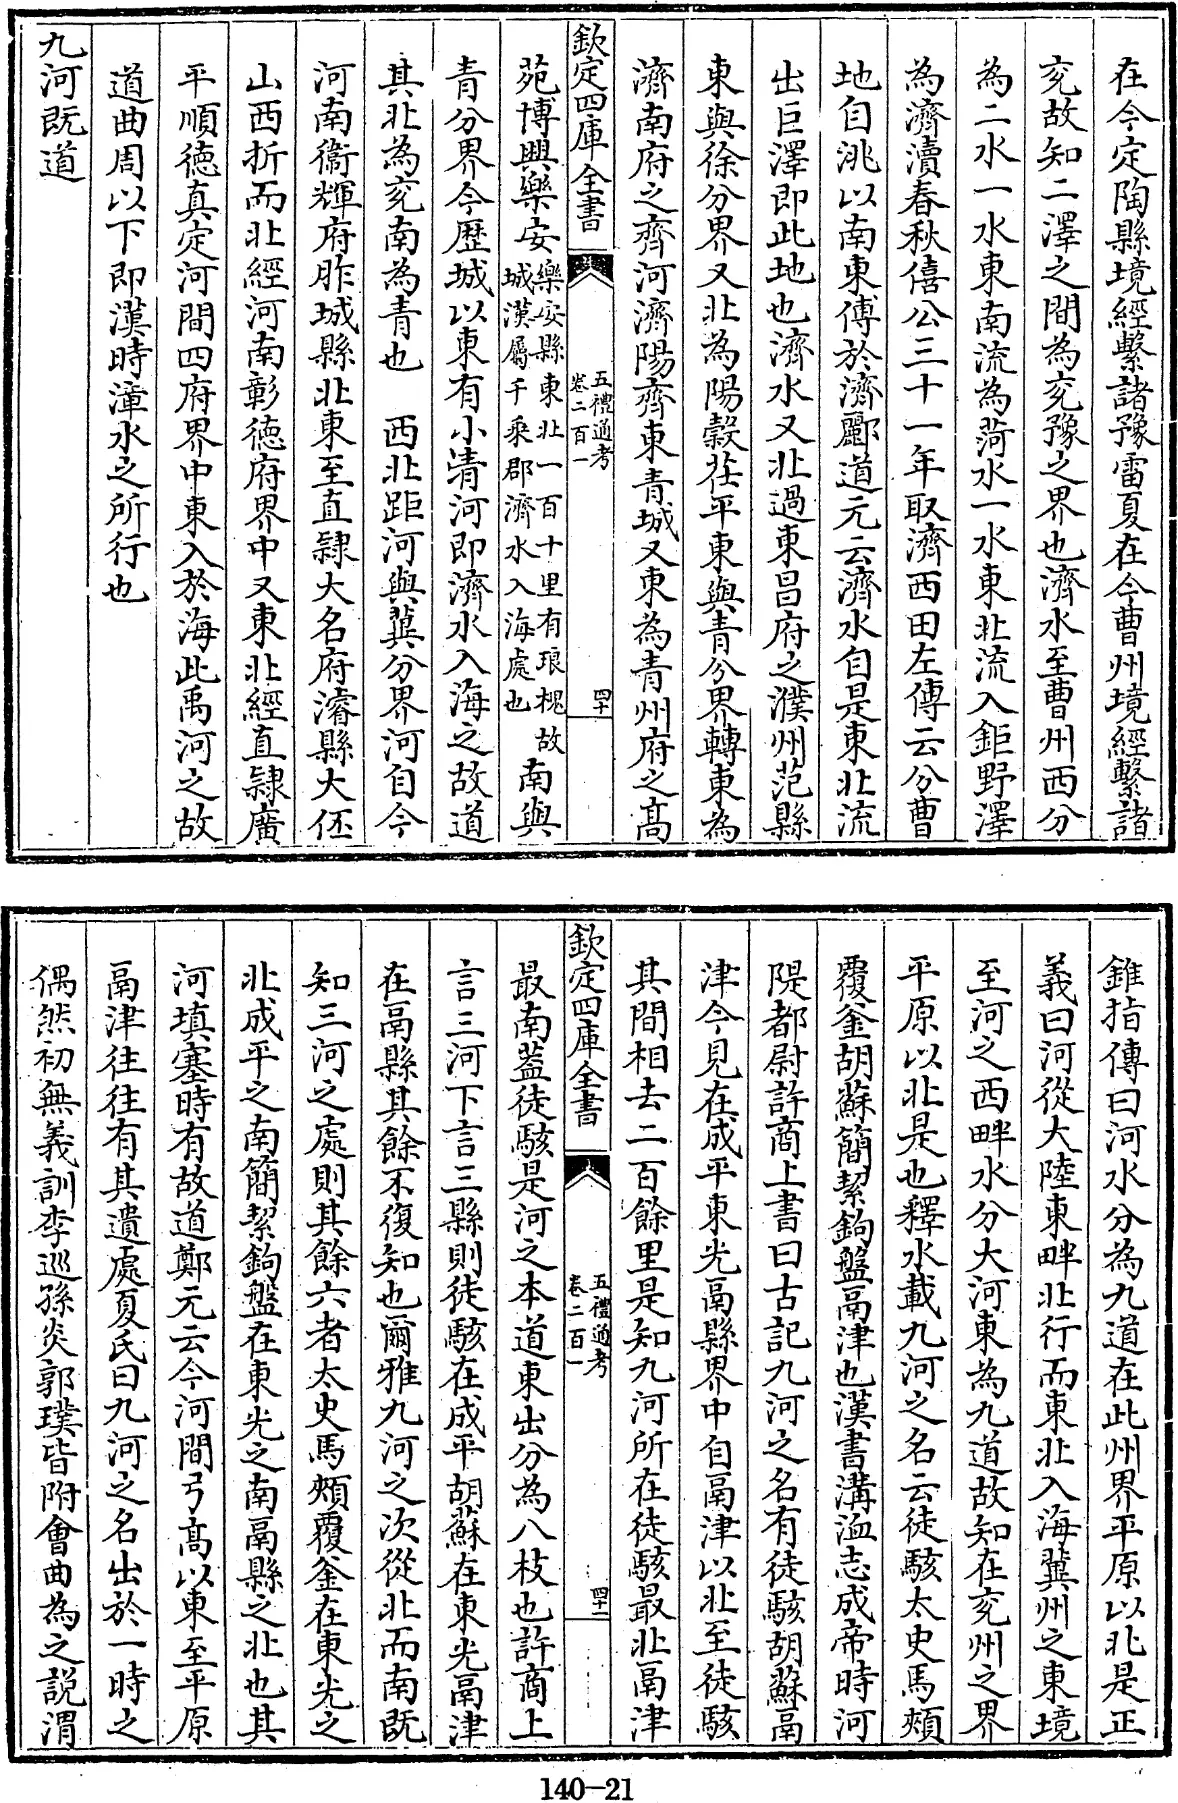 在今定陶縣境經繫諸豫雷夏在今曹州境經繫諸
兖故知二澤之間為兖豫之界也濟水至曹州西分
為二水一水東南流為菏水一水東北流入鉅野澤
為濟瀆春秋僖公三十一年取濟西田左傳云分曹
地自洮以南東傅於濟酈道元云濟水自是東北流
出巨澤即此地也濟水又北過東昌府之濮州范縣
東與徐分界又北為陽穀茌平東與青分界轉東為
濟南府之齊河濟陽齊東青城又東為青州府之高
欽定四庫全書
五禮通考
卷二百一
四十
苑博興樂安樂安縣東北一百十里有琅槐故
城漢屬千乘郡濟水入海處也南與
青分界今歷城以東有小清河即濟水入海之故道
其北為兖南為青也 西北距河與冀分界河自今
河南衞輝府胙城縣北東至直隸大名府濬縣大伾
山西折而北經河南彰德府界中又東北經直隸廣
平順德真定河間四府界中東入於海此禹河之故
道曲周以下即漢時漳水之所行也
九河既道
錐指傳曰河水分為九道在此州界平原以北是正
義曰河從大陸東畔北行而東北入海冀州之東境
至河之西畔水分大河東為九道故知在兖州之界
平原以北是也釋水載九河之名云徒駭太史馬頰
覆釜胡蘇簡絜鉤盤鬲津也漢書溝洫志成帝時河
隄都尉許商上書曰古記九河之名有徒駭胡蘇鬲
津今見在成平東光鬲縣界中自鬲津以北至徒駭
其間相去二百餘里是知九河所在徒駭最北鬲津
欽定四庫全書
五禮通考
卷二百一
四十一
最南葢徒駭是河之本道東出分為八枝也許商上
言三河下言三縣則徒駭在成平胡蘇在東光鬲津
在鬲縣其餘不復知也爾雅九河之次從北而南既
知三河之處則其餘六者太史馬頰覆釜在東光之
北成平之南簡絜鉤盤在東光之南鬲縣之北也其
河填塞時有故道鄭元云今河間弓高以東至平原
鬲津往往有其遺處夏氏曰九河之名出於一時之
偶然初無義訓李巡孫炎郭璞皆附會曲為之說渭
140-21